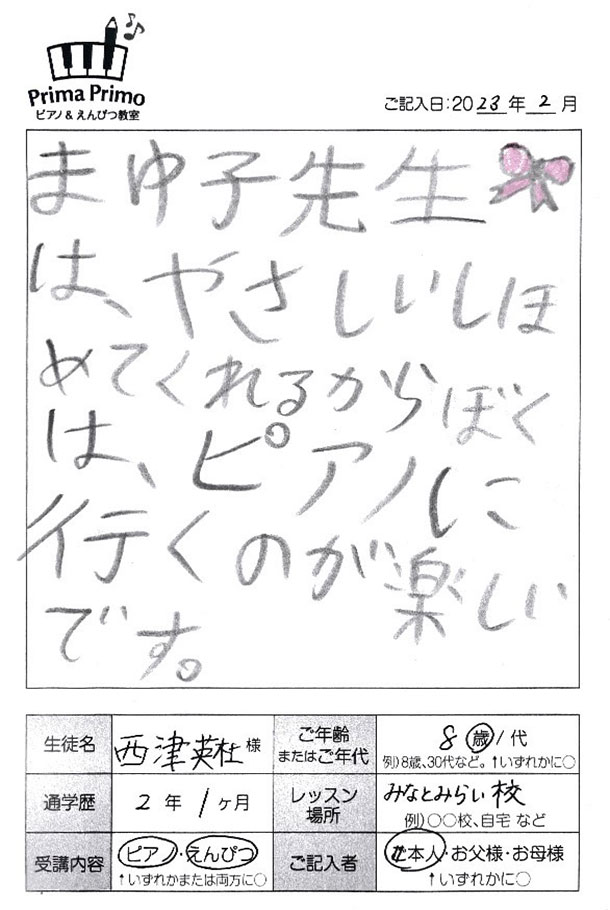 Prima Primo
ピアノ&えんぴつ教室
ご記入日:2023年2月
まゆ子先生
は、やさしいしほ
めてくれるからぼく
は、ピアノに
行くのが楽しい
です。
生徒名 西津英杜様 ご年齢またはご年代 8歳/代
例)8歳、30代など。↑いずれかに○
通学歴 2年1ヶ月 レッスン場所 みなとみらい校
例)○○校、自宅 など
受講内容 ピアノ・えんぴつ ご記入者 ご本人・お父様・お母様
↑いずれかまたは両方に○ ↑いずれかに○